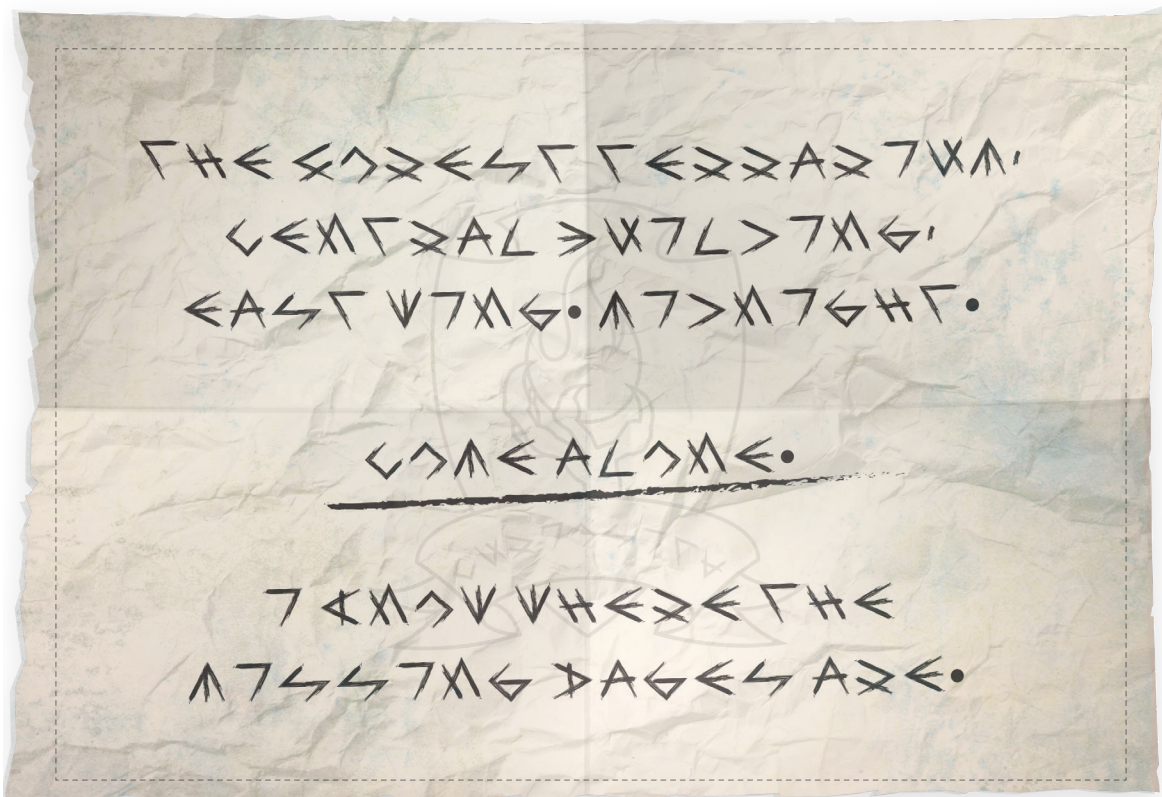 THE FOREST TERRARIUM,
CENTRAL BUILDING,
EAST WING. MIDNIGHT.
COME ALONE.
I KNOW WHERE THE
MISSING PAGES ARE.